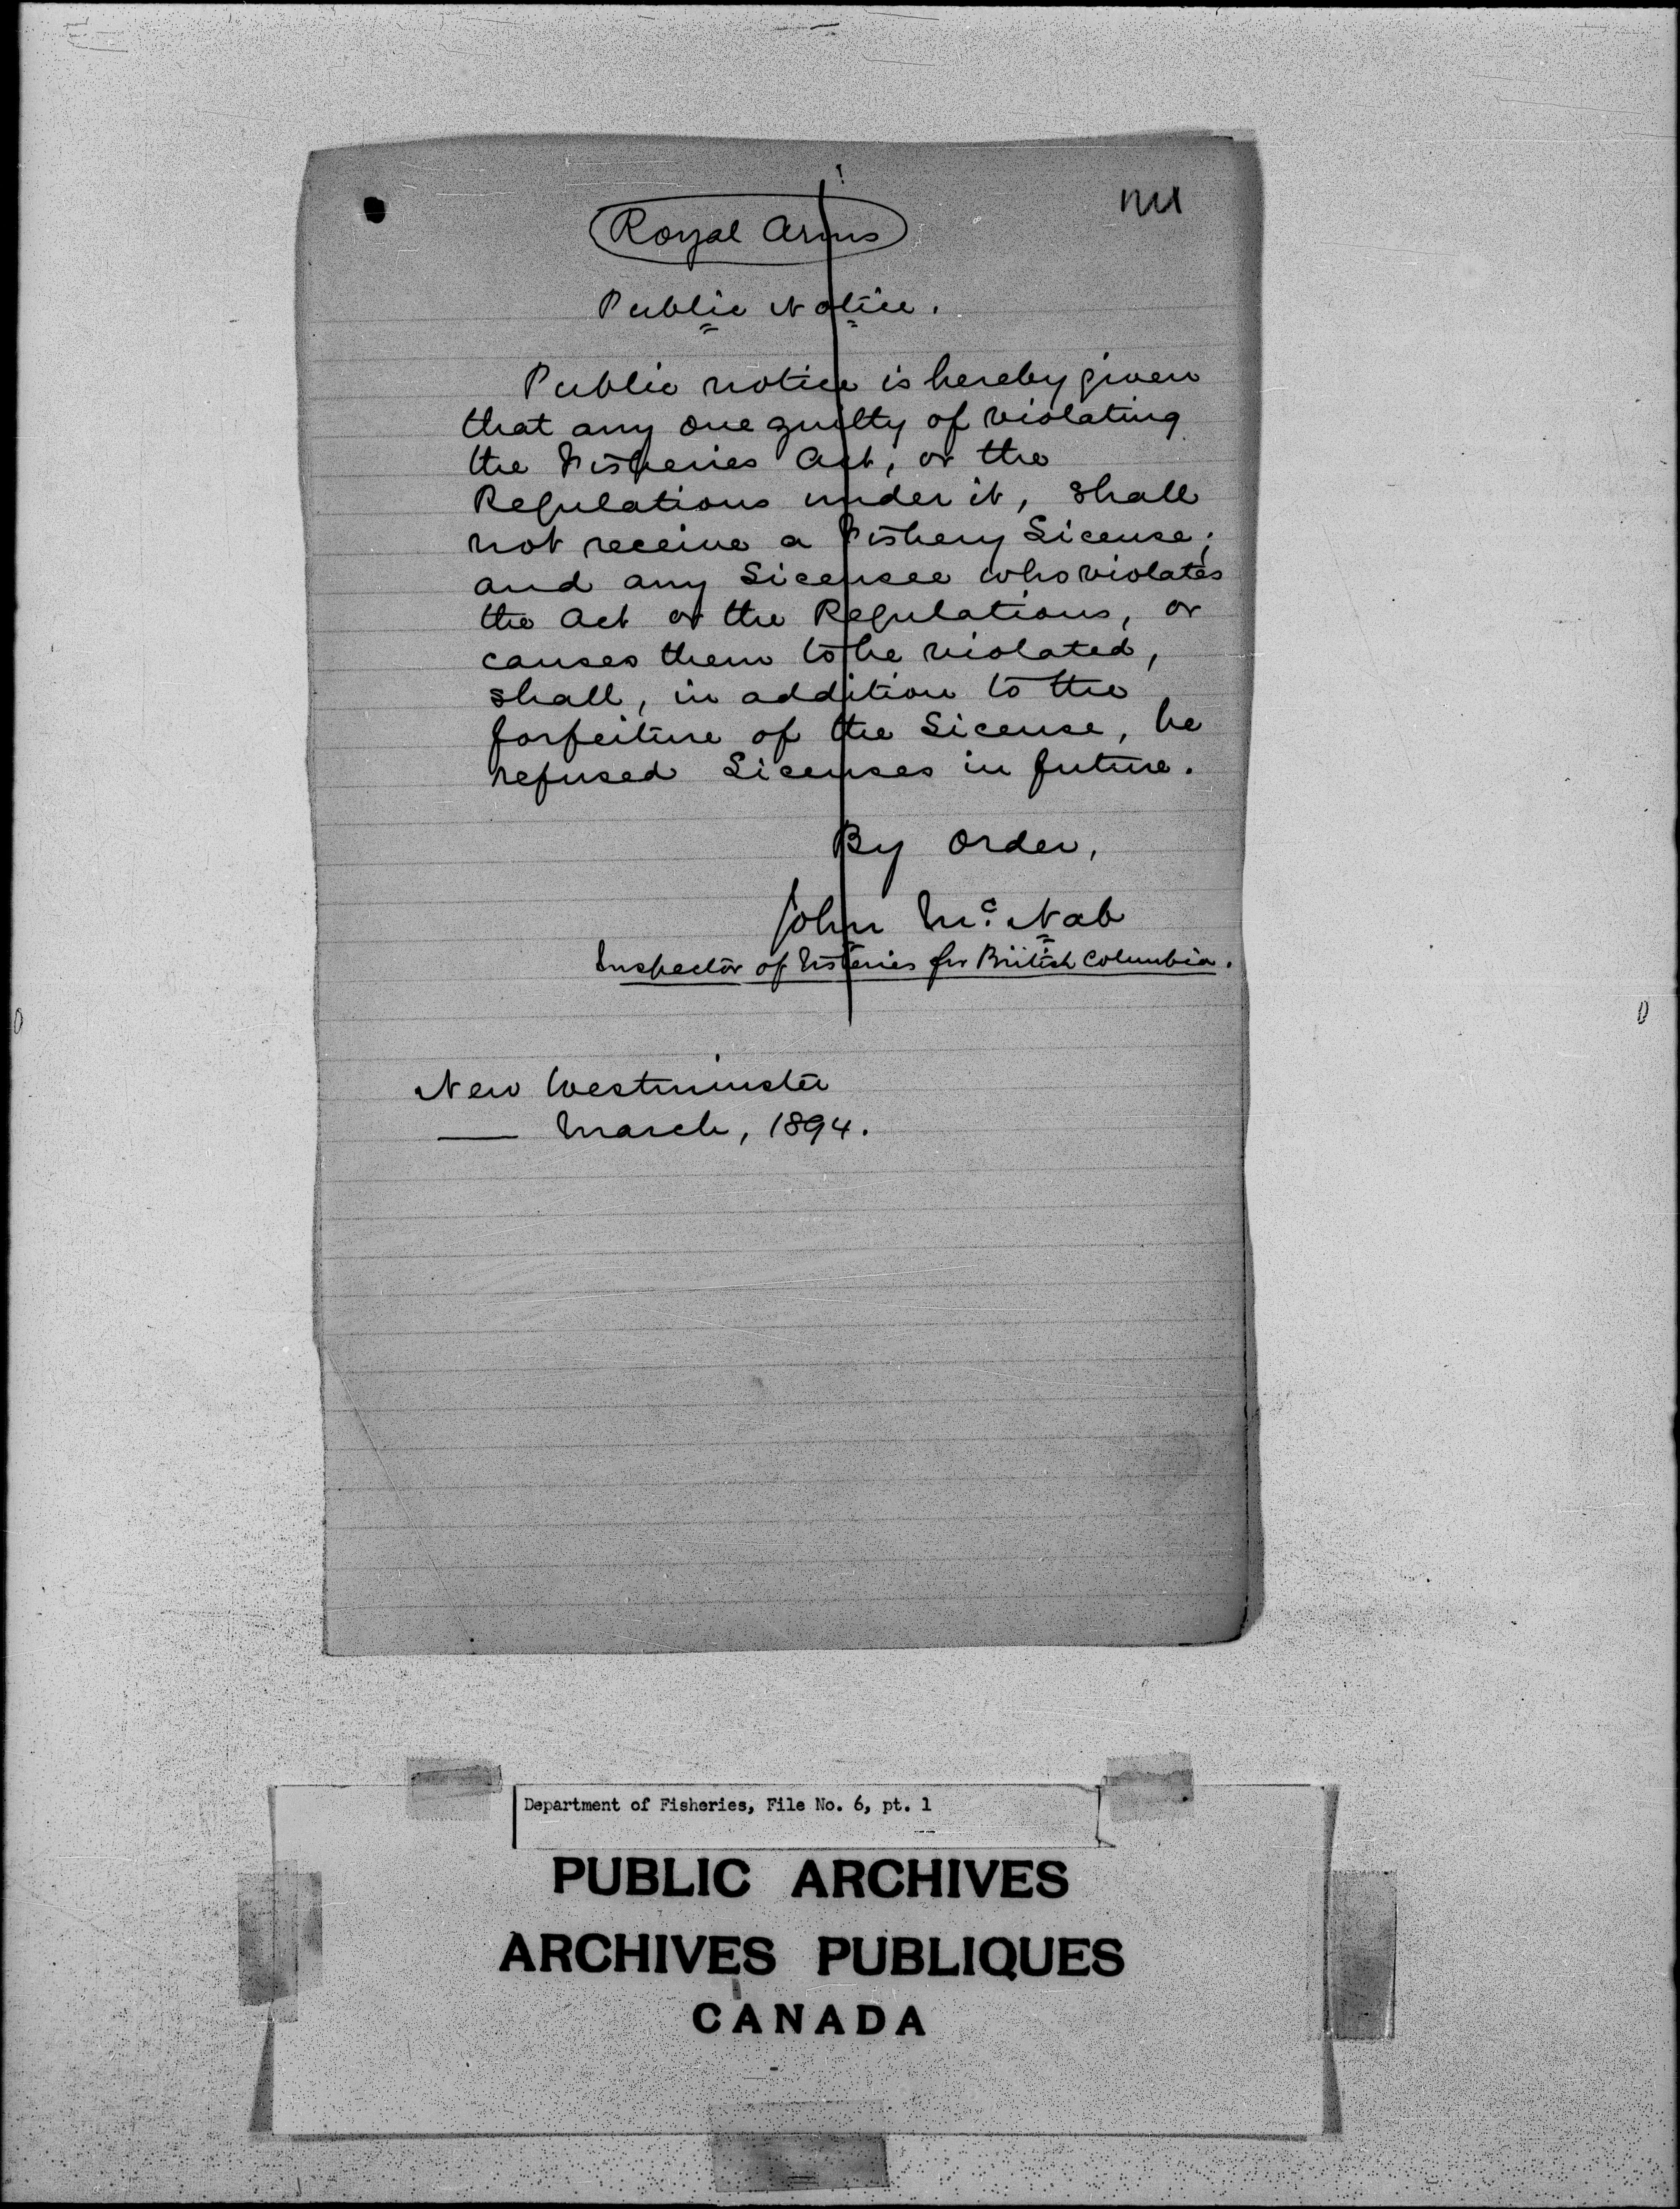 Royal Arms
Public Notice.
Public notice is hereby given
that any one guilty of violating
the Fisheries Act, or the
Regulations under it, shall
not receive a Fishery License;
and any Licensee who violates
the Act or the Regulations, or
causes them to be violated,
shall, in addition to the
forfeiture of the License, be
refused Licenses in future.
By Order,
John Mc. Nab
Inspector of Fisheries for British Columbia.
New Westminster
—— March, 1894.
Department of Fisheries, File No. 6, pt. 1
PUBLIC ARCHIVES
ARCHIVES PUBLIQUES
CANADA